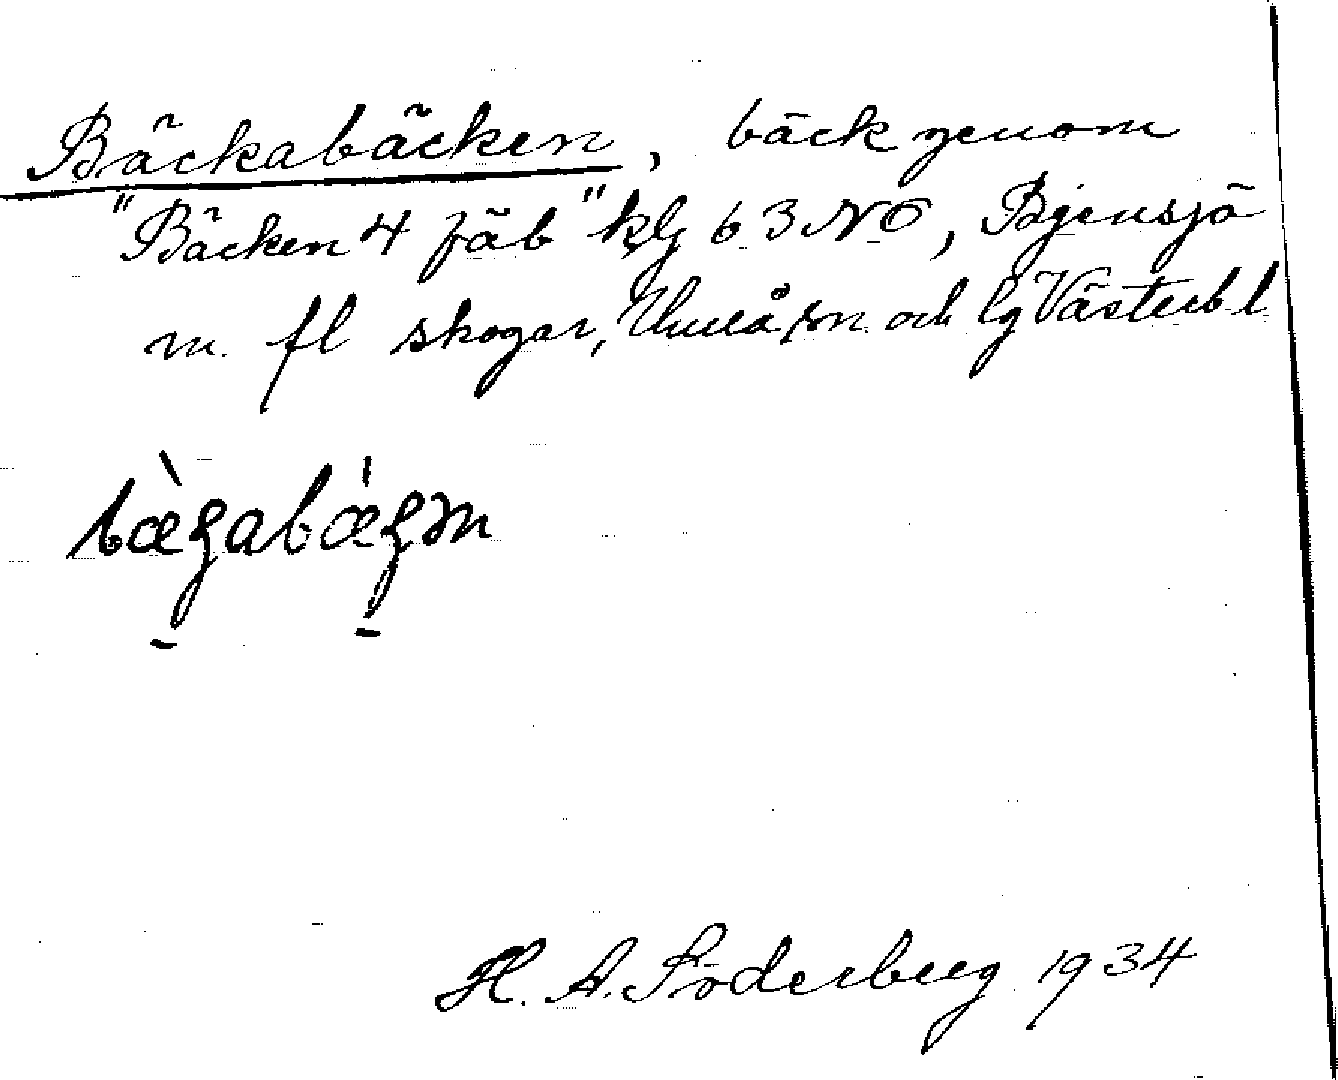 Bäckabäcken, bäck genom
"Bäcken 4 fäb" kbl 63 NO, Bjensjö
m. fl skogar, Umeå sn och lg Västerb l
H. A. Söderberg 1934